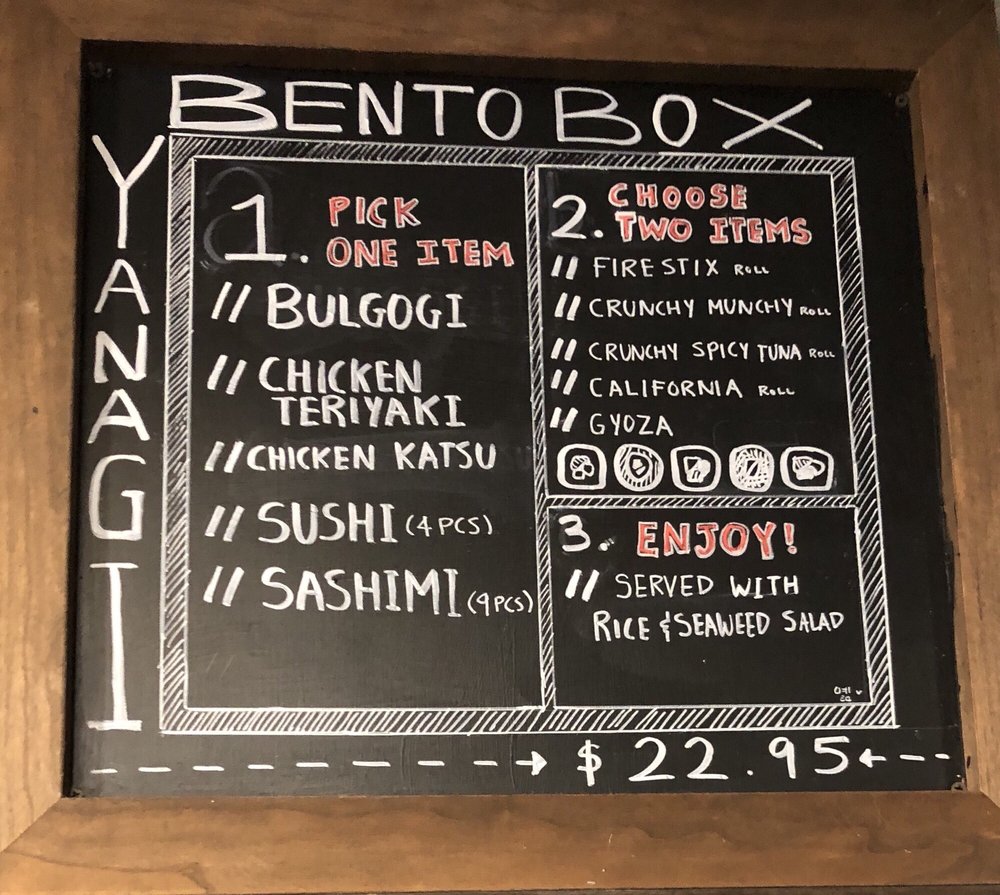 BENTO BOX
YANAGI
1. PICK
ONE ITEM
// BULGOGI
// CHICKEN
TERIYAKI
// CHICKEN KATSU
// SUSHI (4 PCS)
// SASHIMI (9 PCS)
2. CHOOSE
TWO ITEMS
// FIRE STIX ROLL
// CRUNCHY MUNCHY ROLL
// CRUNCHY SPICY TUNA ROLL
// CALIFORNIA ROLL
// GYOZA
3. ENJOY!
// SERVED WITH
RICE & SEAWEED SALAD
$ 22.95